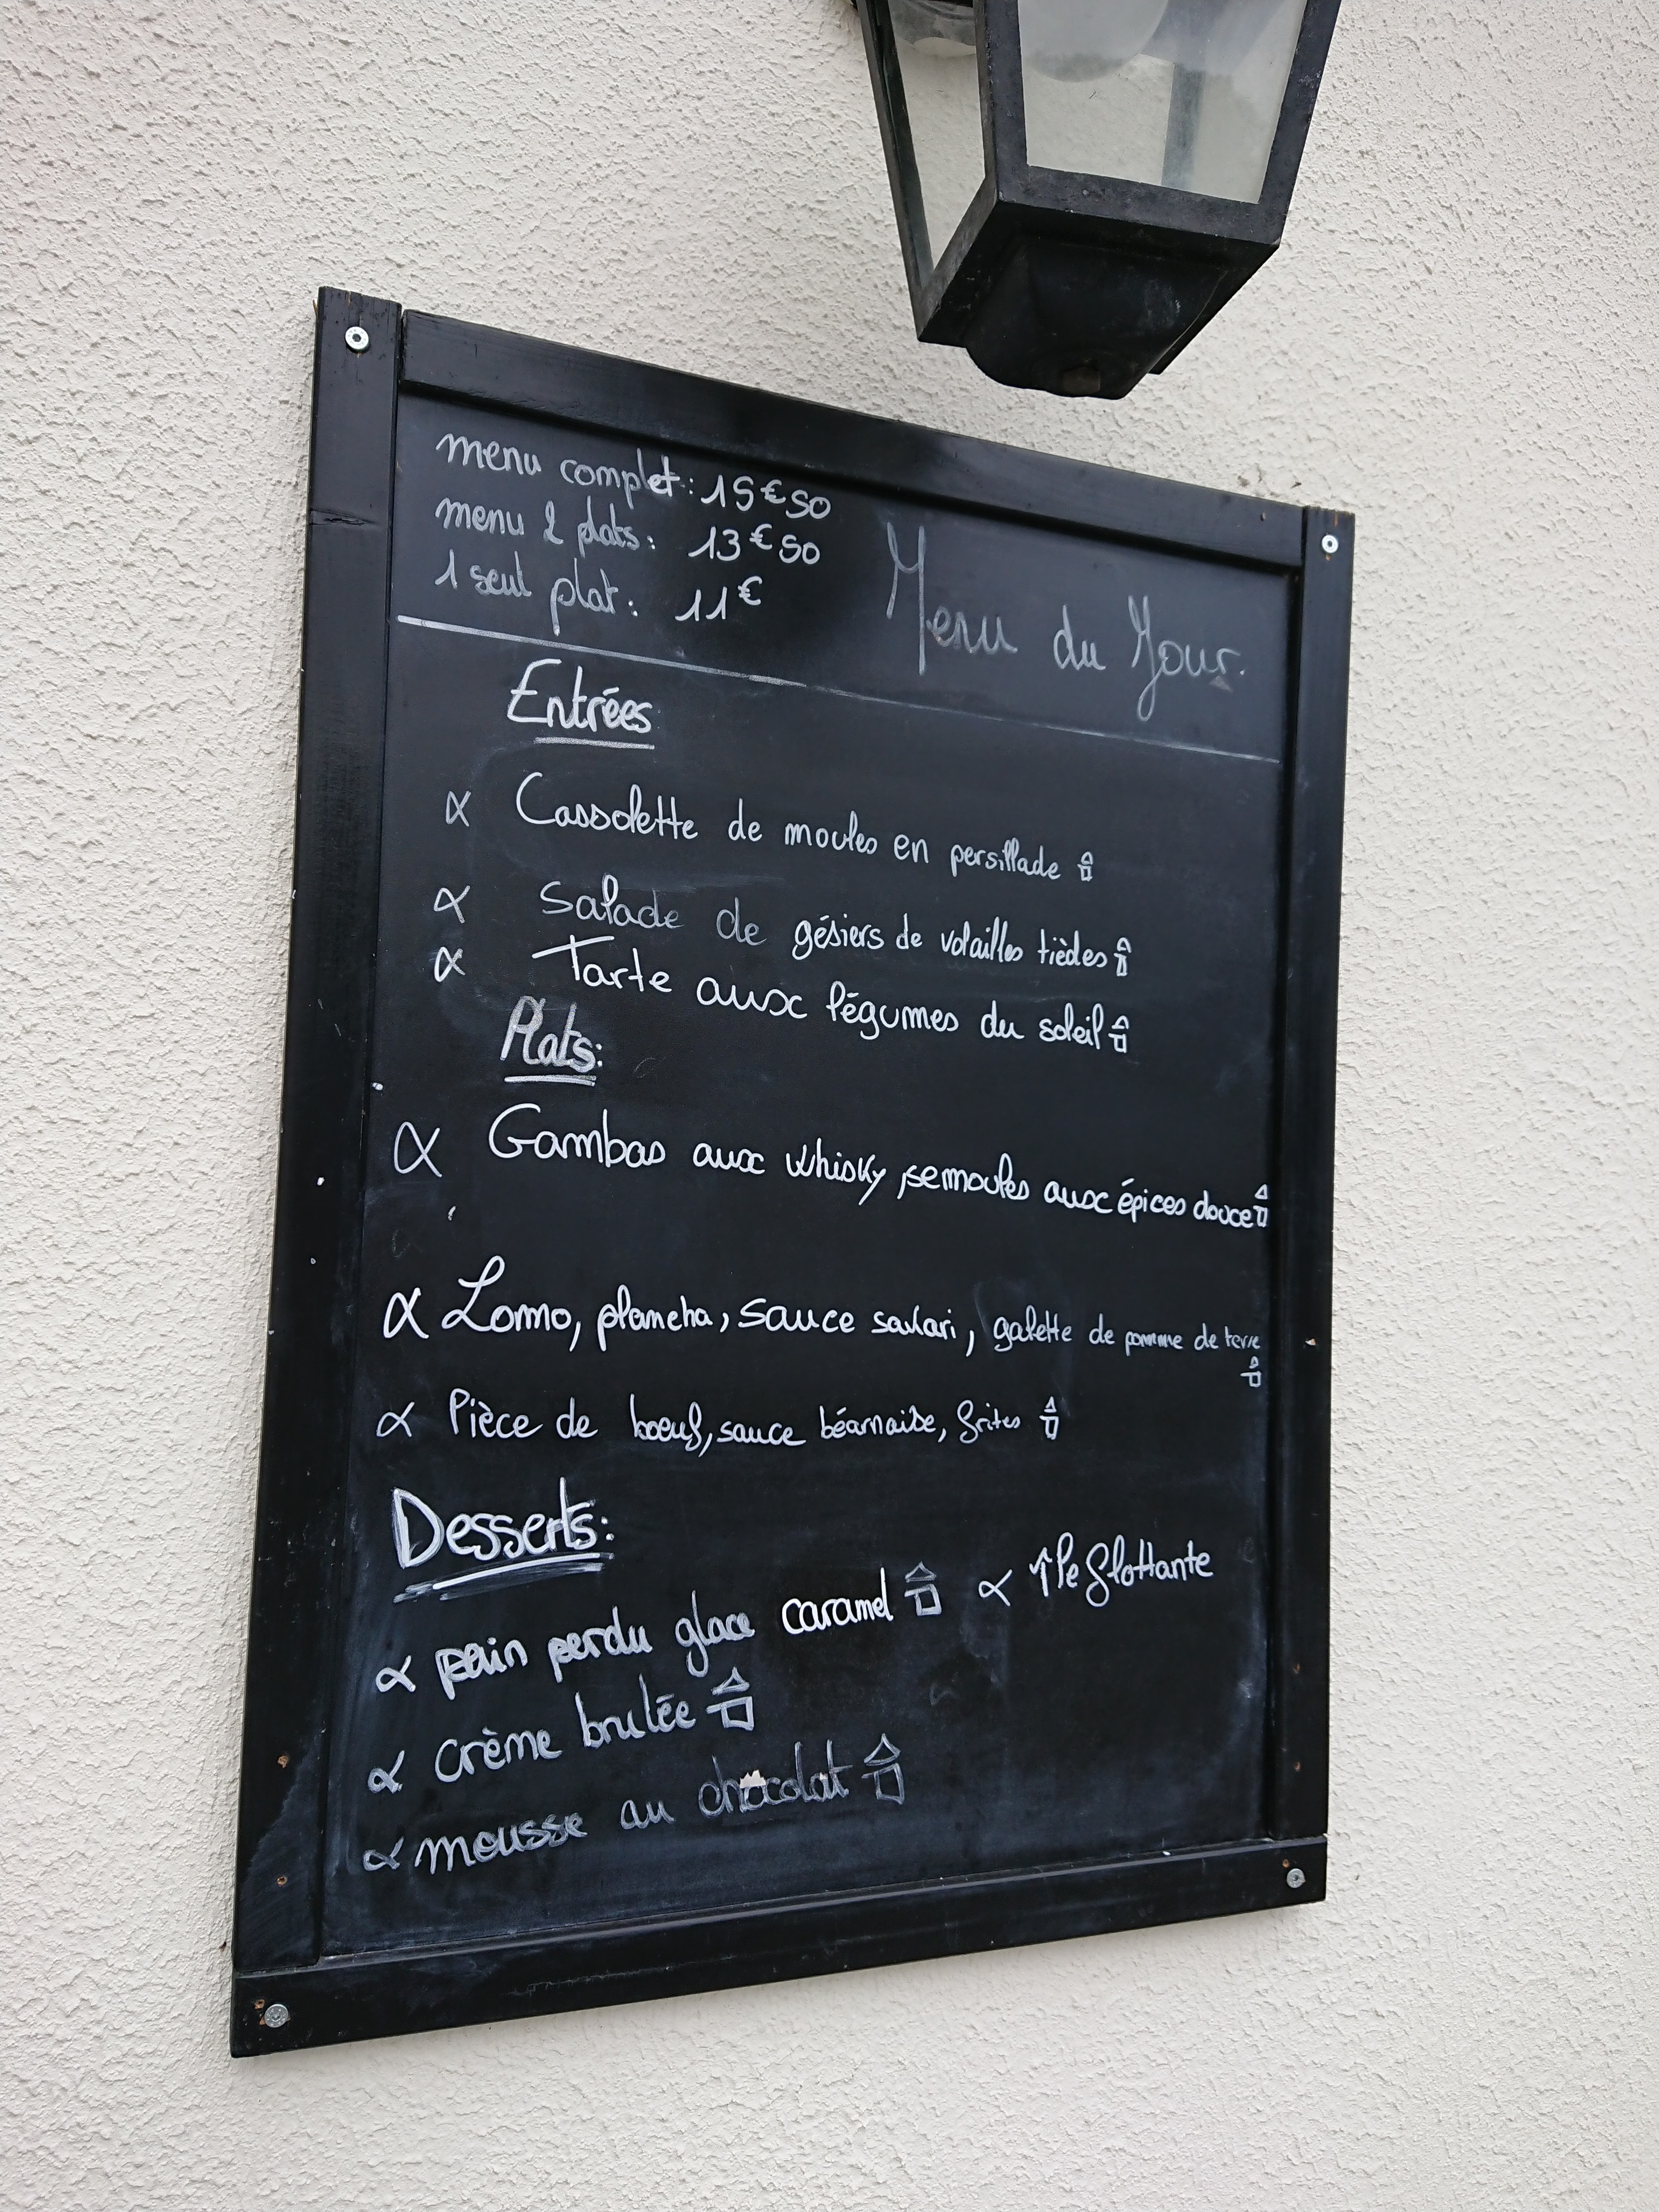 menu complet: 15€50
menu 2 plats: 13€50
1 seul plat: 11€
Menu du Jour.
Entrées
∝ Cassolette de moules en persillade
∝ Salade de gésiers de volailles tièdes
∝ Tarte aux légumes du soleil
Plats:
∝ Gambas aux whisky, semoules aux épices douce
∝ Lomo, plancha, sauce savari, galette de pomme de terre
∝ Pièce de boeuf, sauce béarnaise, frites
Desserts:
∝ pain perdu glace caramel ∝ île flottante
∝ crème brulée
∝ mousse au chocolat